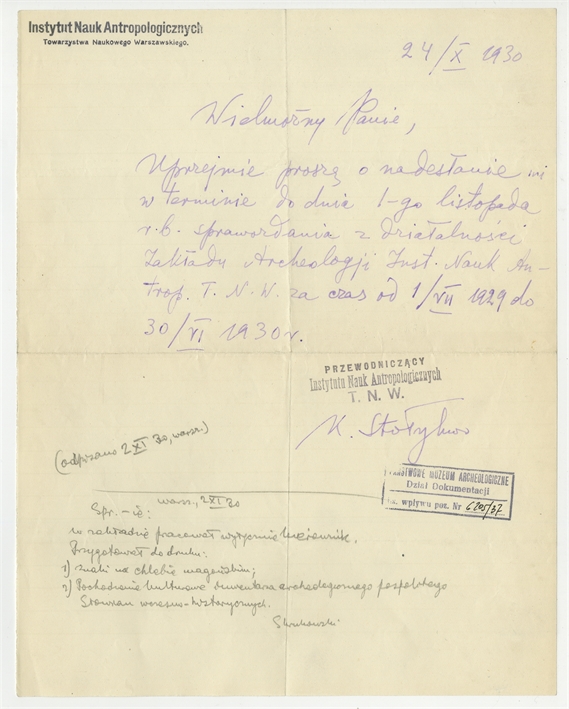 Instytut Nauk Antropologicznych
Towarzystwa Naukowego Warszawskiego.
24/X 1930
Wielmożny Panie,
Uprzejmie proszę o nadesłanie mi
w terminie do dnia 1-go listopada
r.b. sprawozdania z działalności
Zakładu Archeologji Inst. Nauk An-
trop. T. N. W. za czas od 1/VII 1929 do
30/VI 1930 r.
PRZEWODNICZĄCY
Instytutu Nauk Antropologicznych
T. N. W.
K. Stołyhwo
(odpisano 2 XI 30, warsz.)
PAŃSTWOWE MUZEUM ARCHEOLOGICZNE
Dział Dokumentacji
wpływu poz. Nr 6205/37
warsz., 2 XI 30
Spr.-ie:
w zakładzie pracował wyłącznie kierownik.
Przygotował do druku:
1) znaki na chlebie
2) Pochodzenie kulturowe inwentarza archeologicznego pospolitego
Słowian wczesno-historycznych.